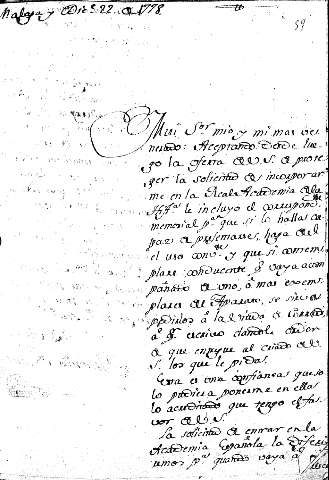 Malaga y Dic.e 22 de 1778
59
Mui S.or mio y mi mas ve
nerado: Aceptando desde lue
go la oferta de V.S. de prote
ger la solicitud de incorporar
me en la Real Academia de la
H.ia le incluyo el correspond.te
memorial p.a que si lo halla ca
paz de presentarse, haga de el
el uso conv.te y que si contem
plare conducente q.e vaya acom
pañado de uno, o mas exem
plares del
pedirlos a la viuda de
a q.n escrivo dandole orden
de que entregue al criado de V.
S. los que le pida.
Esta es una confianza que so
lo pudiera ponerme en ella
lo acreditado que tengo el fa
vor de V.S.
La solicitud de entrar en la
Academia Española la
p.a quando vaya a